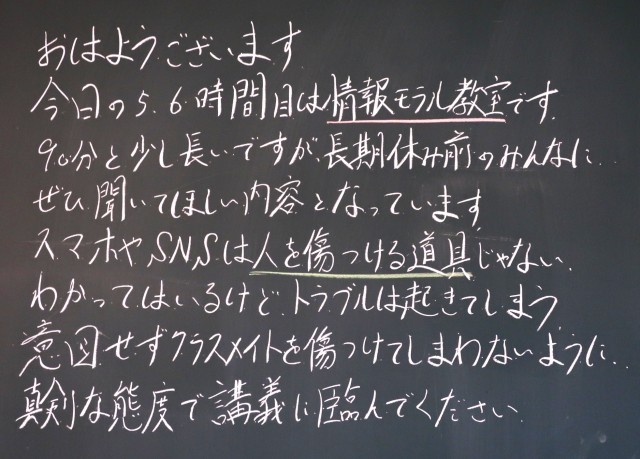 おはようございます
今日の5.6時間目は情報モラル教室です
90分と少し長いですが、長期休み前のみんなに
ぜひ聞いてほしい内容となっています
スマホやSNSは人を傷つける道具じゃない
わかってはいるけどトラブルは起きてしまう
意図せずクラスメイトを傷つけてしまわないように
真剣な態度で講義に臨んでください